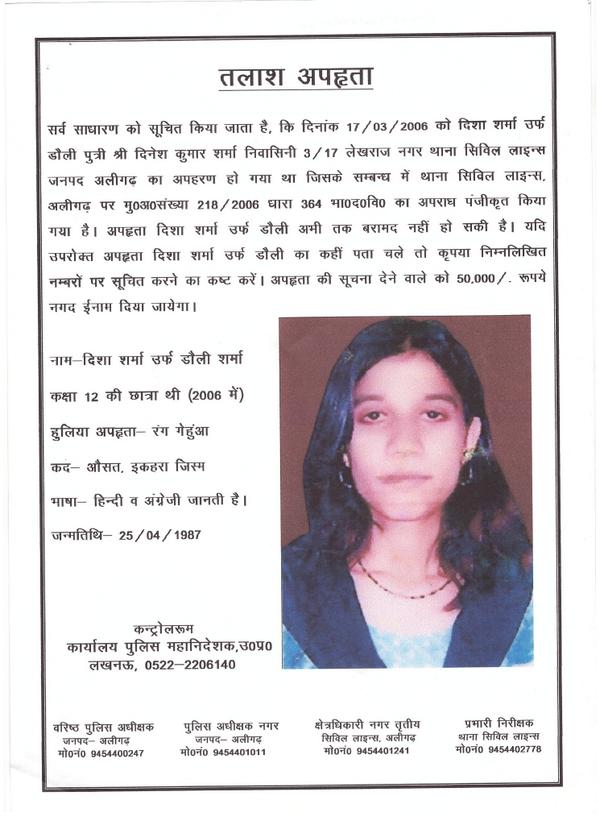 तलाश अपहृता
सर्व साधारण को सूचित किया जाता है, कि दिनांक 17/03/2006 को दिशा शर्मा उर्फ
डौली पुत्री श्री दिनेश कुमार शर्मा निवासिनी 3/17 लेखराज नगर थाना सिविल लाइन्स
जनपद अलीगढ़ का अपहरण हो गया था जिसके सम्बन्ध में थाना सिविल लाइन्स,
अलीगढ़ पर मु0अ0संख्या 218/2006 धारा 364 भा0द0वि0 का अपराध पंजीकृत किया
गया है। अपहृता दिशा शर्मा उर्फ डौली अभी तक बरामद नहीं हो सकी है। यदि
उपरोक्त अपहृता दिशा शर्मा उर्फ डौली का कहीं पता चले तो कृपया निम्नलिखित
नम्बरों पर सूचित करने का कष्ट करें। अपहृता की सूचना देने वाले को 50,000/. रूपये
नगद ईनाम दिया जायेगा।
नाम–दिशा शर्मा उर्फ डौली शर्मा
कक्षा 12 की छात्रा थी (2006 में)
हुलिया अपहृता– रंग गेहुंआ
कद– औसत, इकहरा जिस्म
भाषा– हिन्दी व अंग्रेजी जानती है।
जन्मतिथि– 25/04/1987
कन्ट्रोलरूम
कार्यालय पुलिस महानिदेशक,उ0प्र0
लखनऊ, 0522–2206140
वरिष्ठ पुलिस अधीक्षक
जनपद– अलीगढ़
मो0नं0 9454400247
पुलिस अधीक्षक नगर
जनपद– अलीगढ़
मो0नं0 9454401011
क्षेत्रधिकारी नगर तृतीय
सिविल लाइन्स, अलीगढ़
मो0नं0 9454401241
प्रभारी निरीक्षक
थाना सिविल लाइन्स
मो0नं0 9454402778